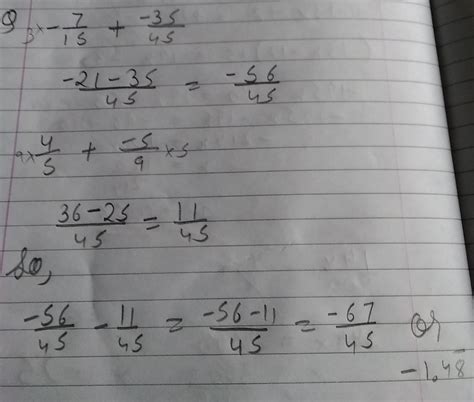 Q 3× -7/15 + -35/45
-21-35/45 = -56/45
9× 4/5 + -5/9 ×5
36-25/45 = 11/45
So,
-56/45 - 11/45 = -56-11/45 = -67/45 Or
-1.48